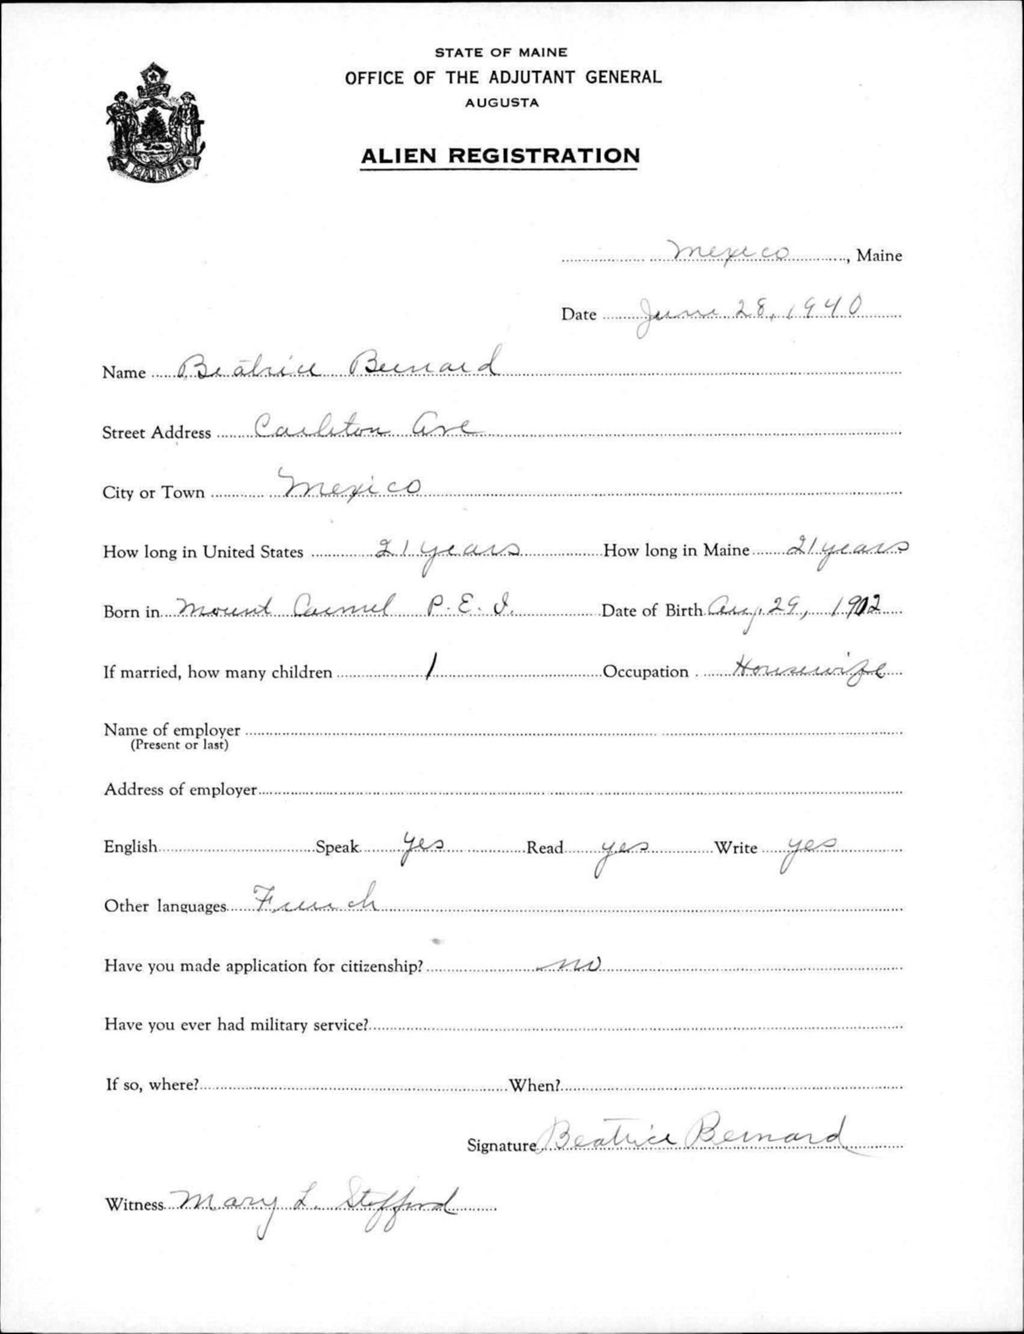 STATE OF MAINE
OFFICE OF THE ADJUTANT GENERAL
AUGUSTA
ALIEN REGISTRATION
MAINE
Mexico, Maine
Date June 28, 1940
Name Beatrice Bernard
Street Address Carleton Ave
City or Town Mexico
How long in United States 21 years How long in Maine 21 years
Born in Mount Carmel P.E.I. Date of Birth Aug. 29, 1902
If married, how many children 1 Occupation Housewife
Name of employer
(Present or last)
Address of employer
English Speak yes Read yes Write yes
Other languages French
Have you made application for citizenship? no
Have you ever had military service?
If so, where? When?
Signature Beatrice Bernard
Witness Mary L. Stafford